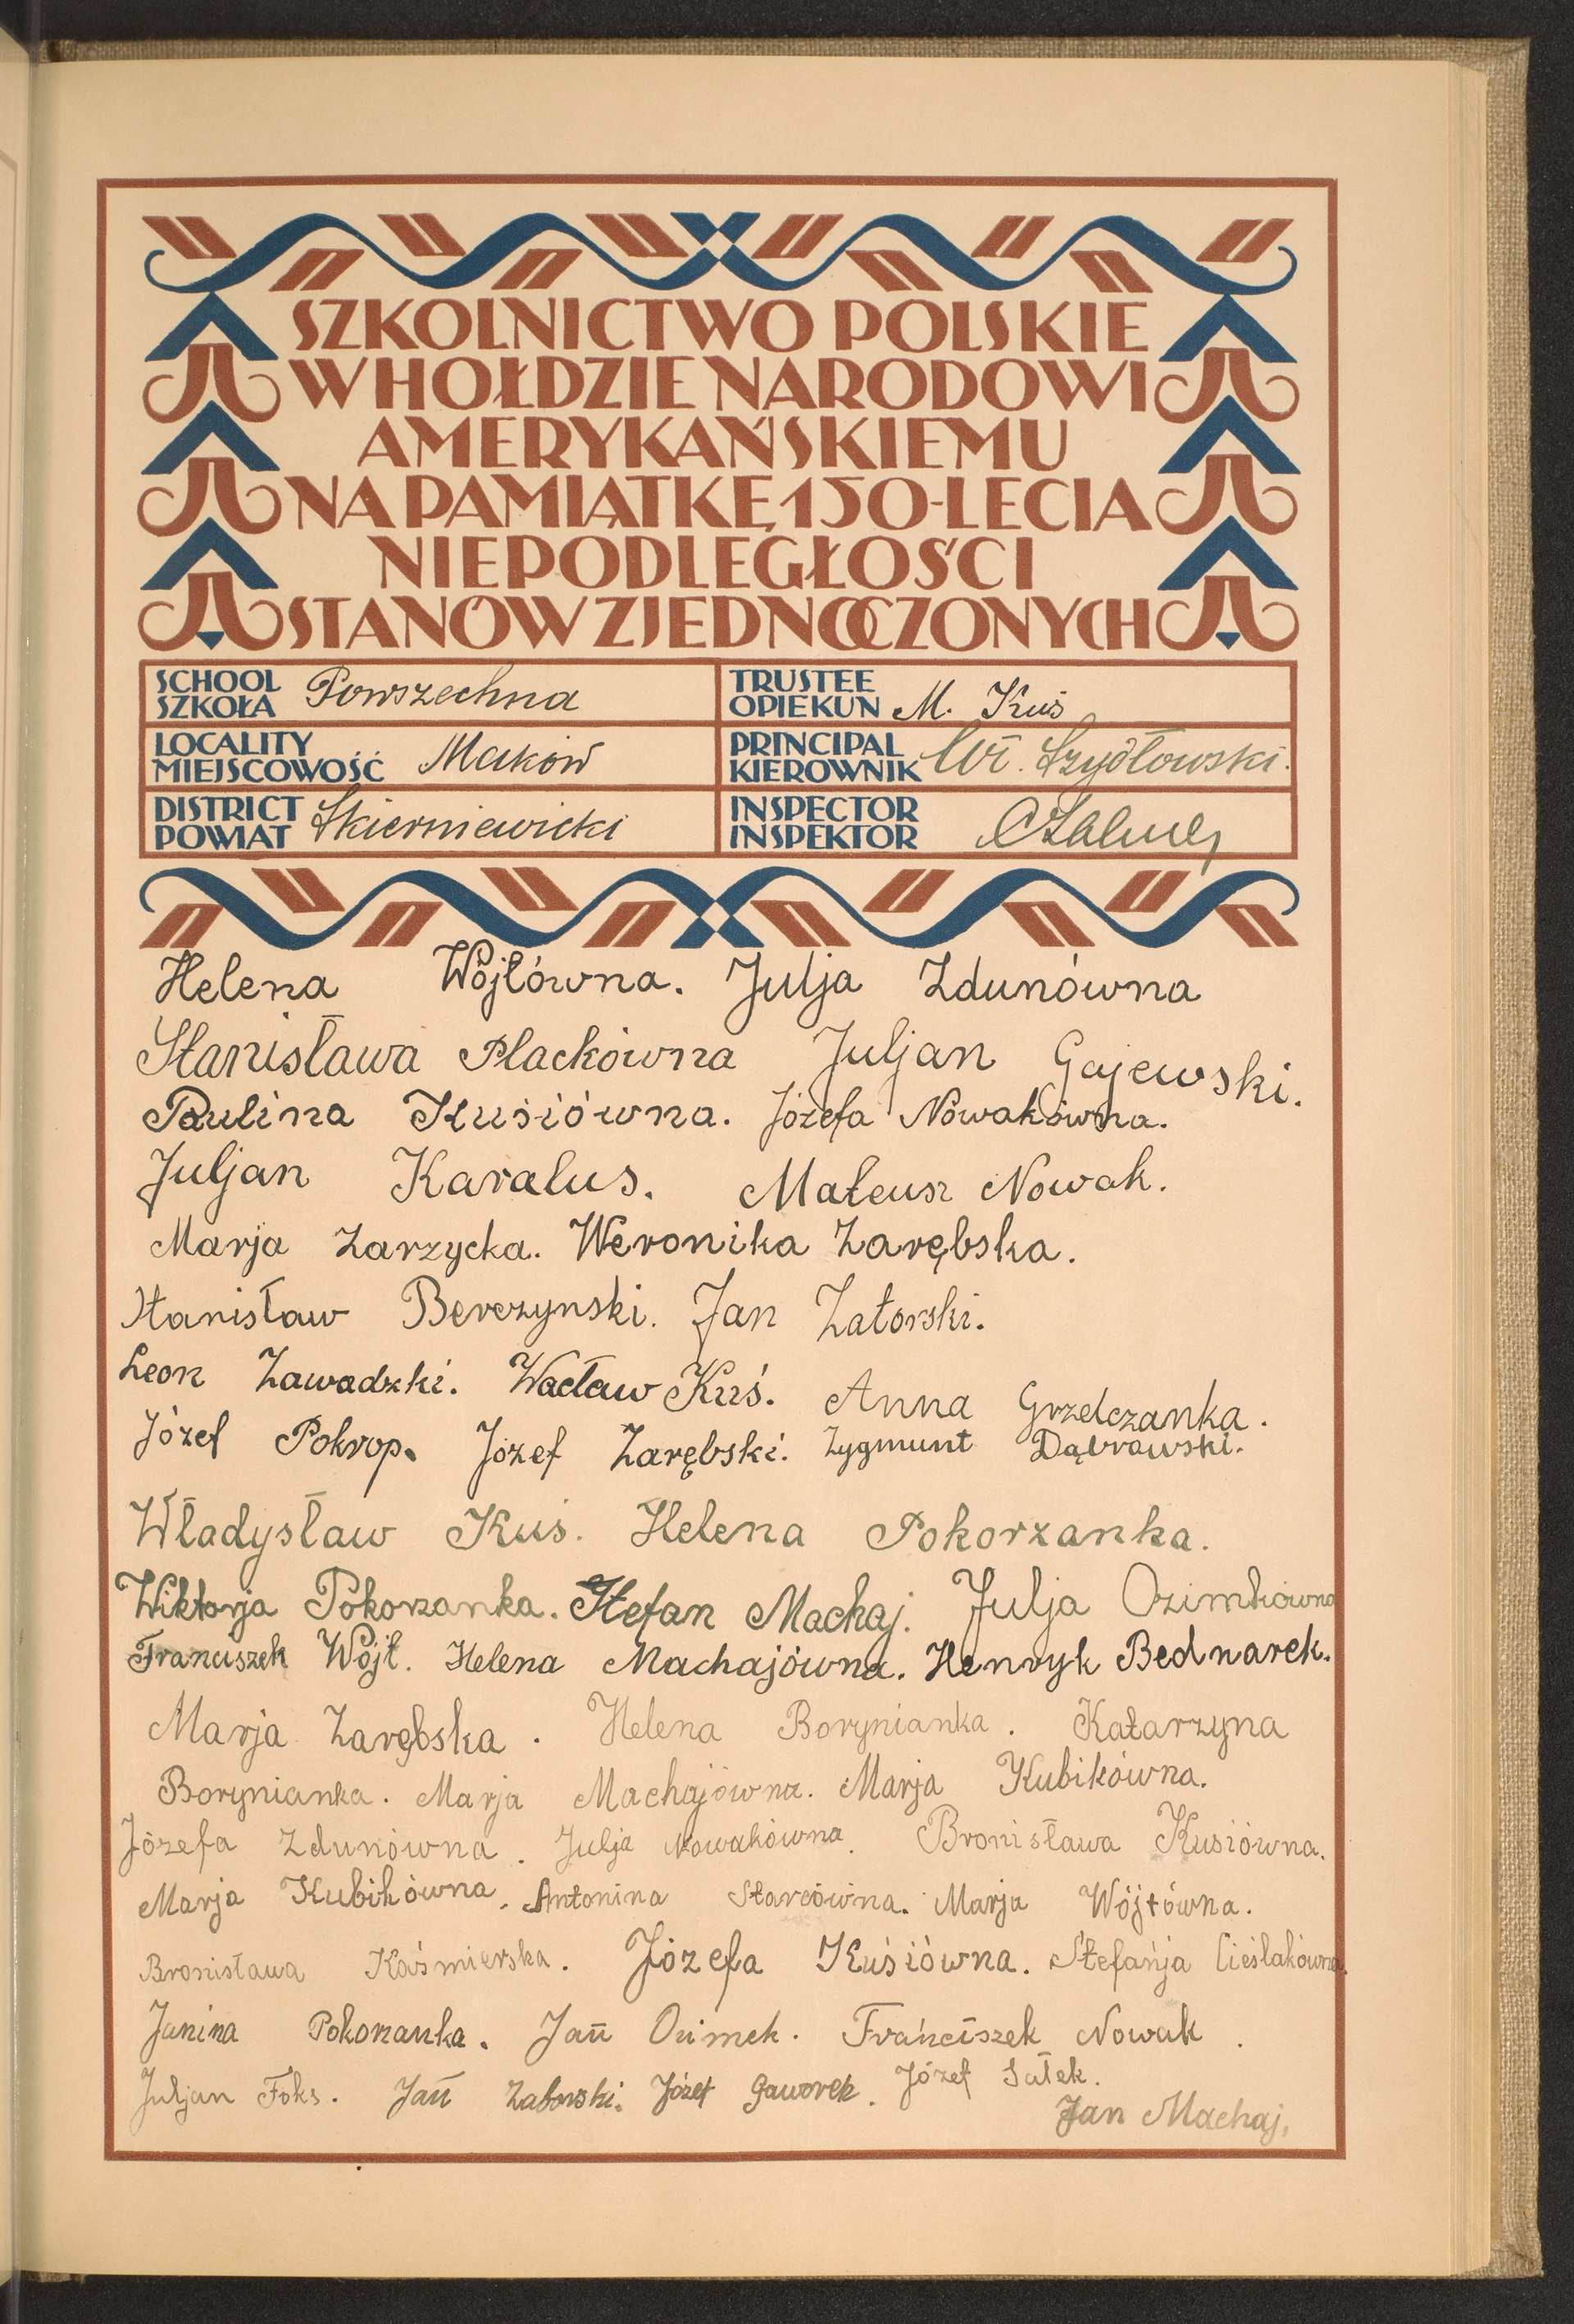 SZKOLNICTWO POLSKIE
W HOŁDZIE NARODOWI
AMERYKAŃSKIEMU
NA PAMIĄTKĘ 150-LECIA
NIEPODLEGŁOŚCI
STANÓW ZJEDNOCZONYCH
SCHOOL
SZKOŁA Powszechna
TRUSTEE
OPIEKUN M. Kuś
LOCALITY
MIEJSCOWOŚĆ Maków
PRINCIPAL
KIEROWNIK Wł. Szydłowski.
DISTRICT
POWIAT Skierniewicki
INSPECTOR
INSPEKTOR
Helena Wójtówna. Julja Zdunówna
Stanisława Plackówna Juljan Gajewski.
Paulina Kusiówna. Józefa Nowakówna.
Juljan Karalus. Mateusz Nowak.
Marja Zarzycka. Weronika Zarębska.
Stanisław Berczynski. Jan Zatorski.
Leon Zawadzki. Wacław Kuś. Anna Grzelczanka.
Józef Pokrop. Józef Zarębski. Zygmunt Dąbrowski.
Władysław Kuś. Helena Pokorzanka.
Wiktorja Pokorzanka. Stefan Machaj. Julja Ozimkówna
Franciszek Wójt. Helena Machajówna. Henryk Bednarek.
Marja Zarębska. Helena Borynianka. Katarzyna
Borynianka. Marja Machajówna. Marja Kubikówna.
Józefa Zdunówna. Julja Nowakówna. Bronisława Kusiówna.
Marja Kubikówna. Antonina Starcówna. Marja Wójtówna.
Bronisława Kaśmierska. Józefa Kuśiówna. Stefańja Cieślakówna.
Janina Pokorzanka. Jan Ozimek. Franciszek Nowak.
Juljan Foks. Jan Zaborski. Józef Gaworek. Józef Sałek.
Jan Machaj.